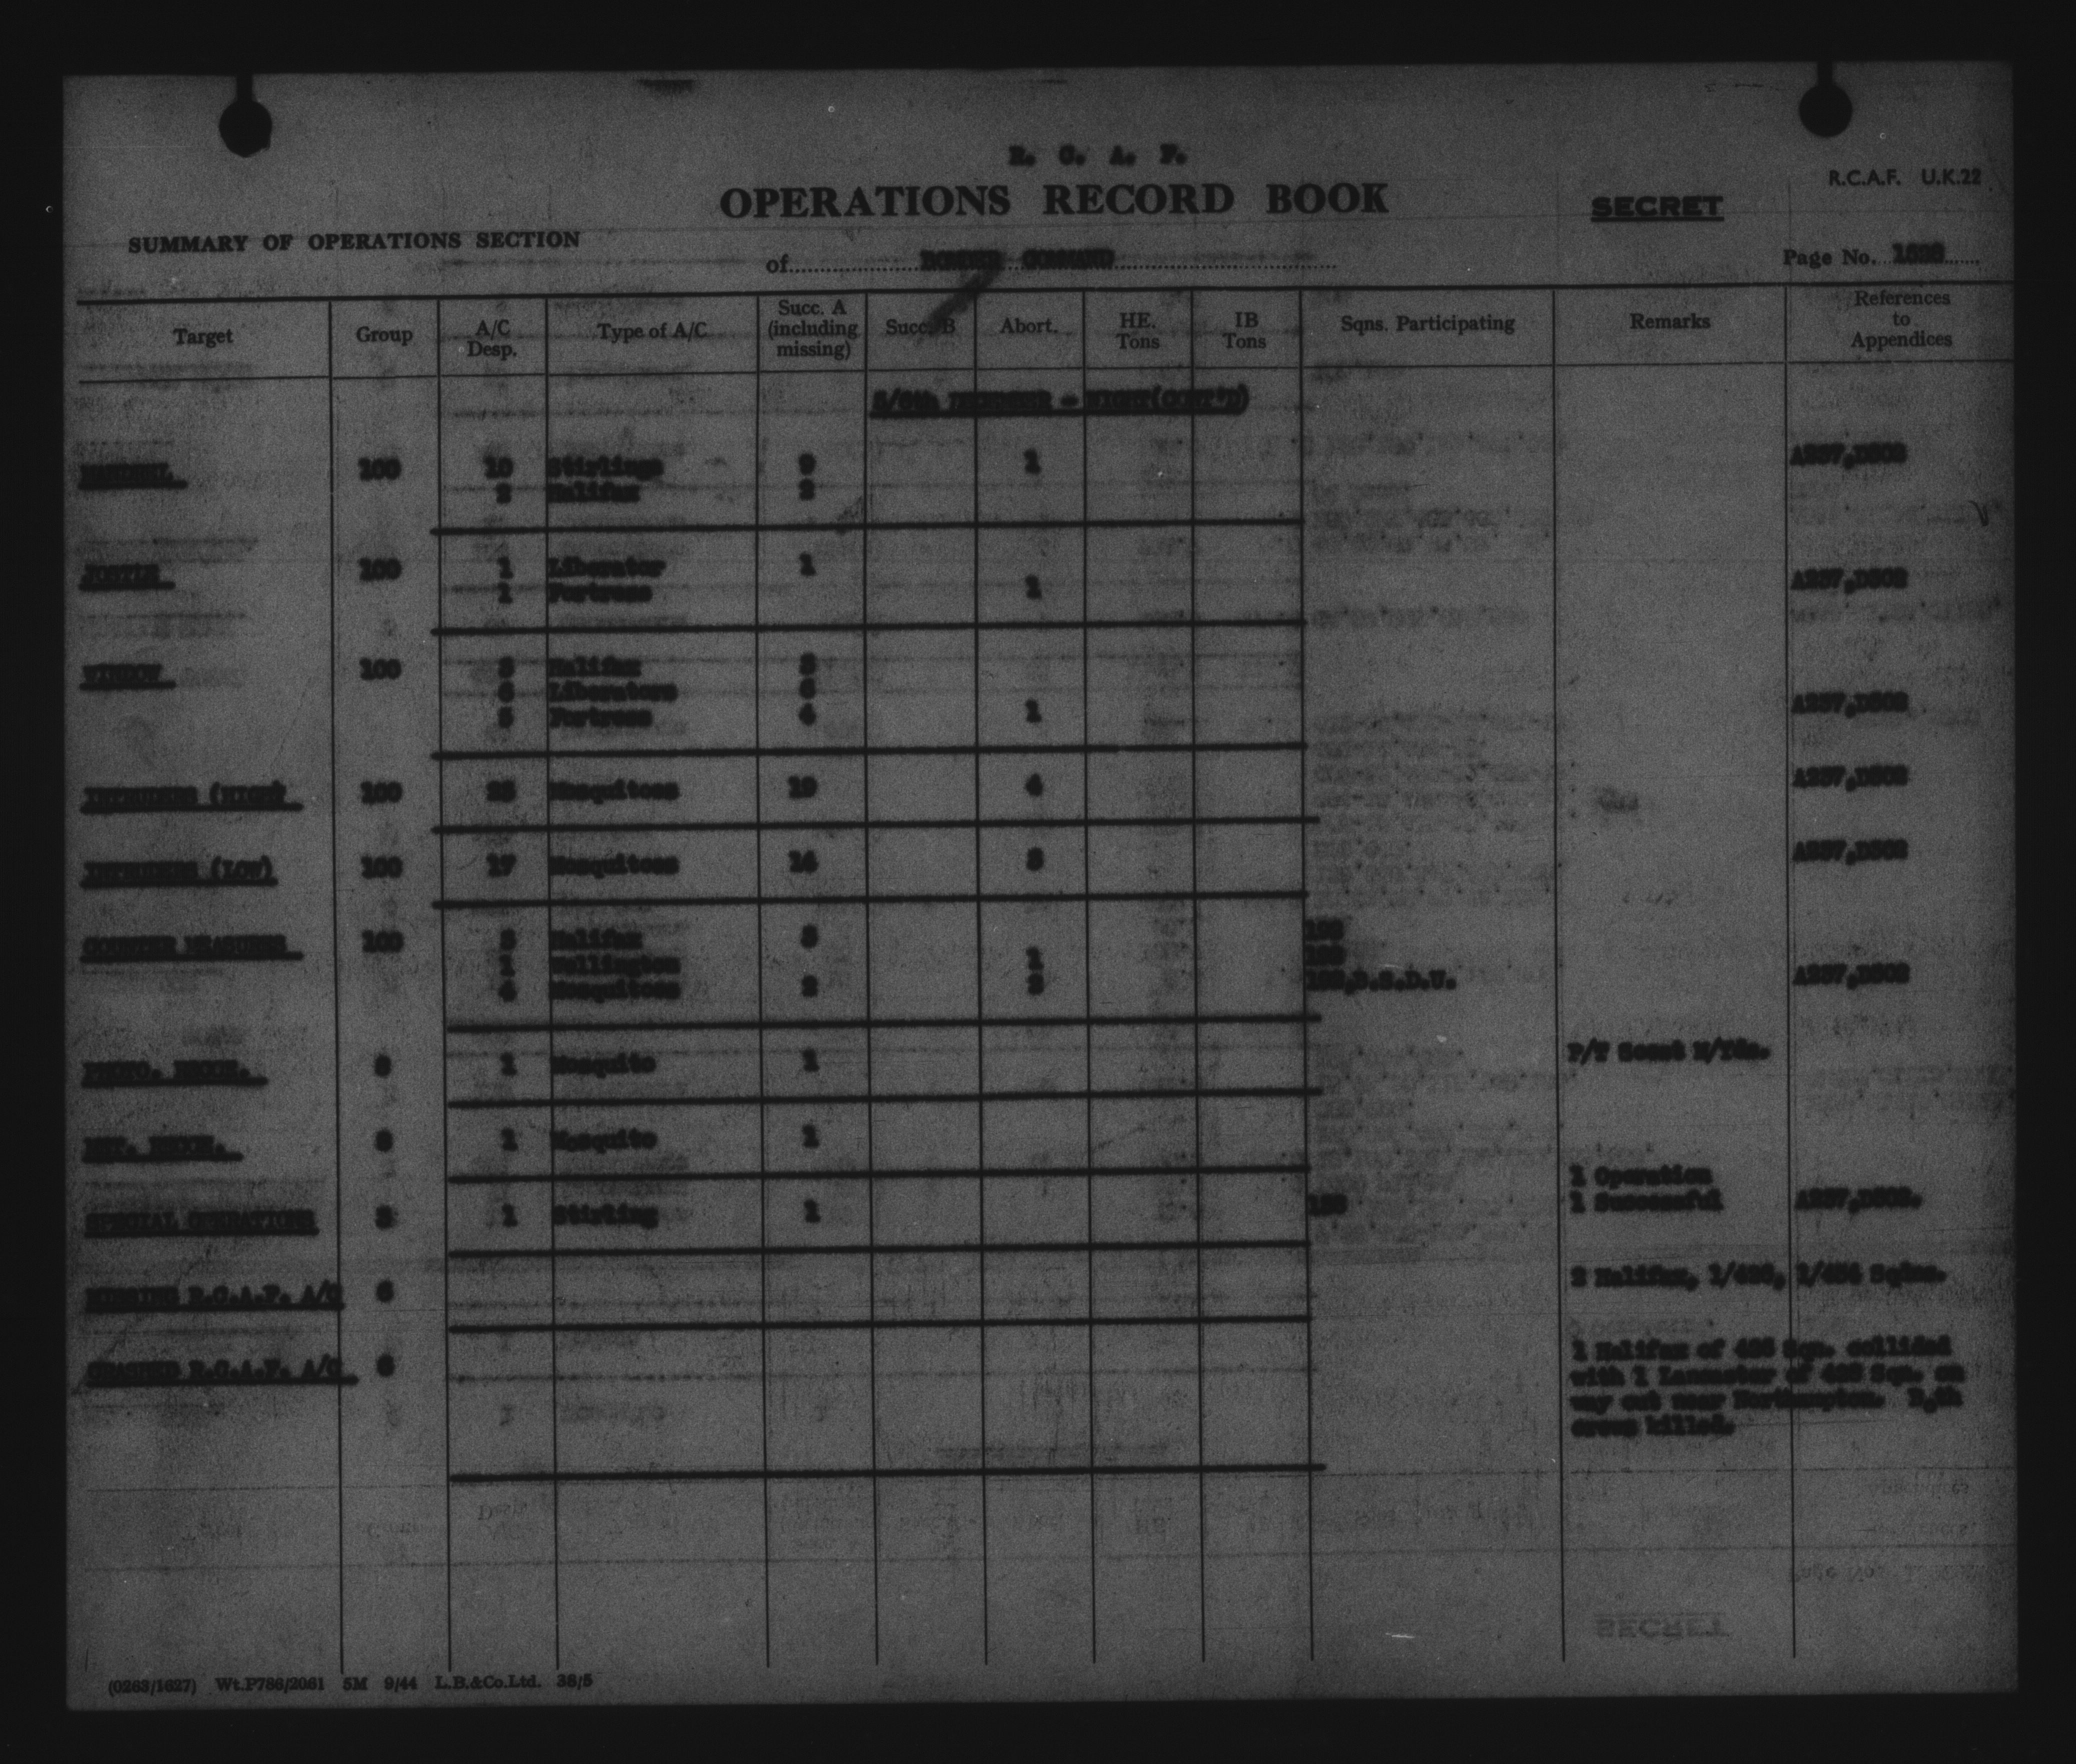 R. C. A. F.
R.C.A.F. U.K.22
OPERATIONS RECORD BOOK
SECRET
SUMMARY OF OPERATIONS SECTION
of BOMBER COMMAND
Page No.
Target Group A/C Desp. Type of A/C Succ. A (including missing) Succ. B Abort. HE. Tons IB Tons Sqns. Participating Remarks References to Appendices
5/6th DECEMBER - NIGHT(CONT'D)
MANDREL 100 10 Stirlings 9 1 A257,D502
2 Halifax 2
JOSTLE 100 1 Liberator 1 A257,D502
1 Fortress 1
WINDOW 100 Halifax
6 Liberators 6
5 Fortress 4 1 A257,D502
INTRUDERS (HIGH) 100 Mosquitoes 19 4 A257,D502
INTRUDERS (LOW) 100 17 Mosquitoes 14 3 A257,D502
COUNTER MEASURES 100 Halifax 192
1 Wellington 1
4 Mosquitoes 2 2 B.S.D.U. A257,D502
PHOTO. RECCE. 8 1 Mosquito 1 P/F Scout M/Tds.
MET. RECCE. 8 1 Mosquito 1
SPECIAL OPERATIONS 3 1 Stirling 1 1 Operation
1 Successful A257,D502.
MISSING R.C.A.F. A/C 6 2 Halifax, Sqdns.
CRASHED R.C.A.F. A/C 6 1 Halifax of Sqn. collided
with 1 Lancaster of Sqn. on
way out near Northampton. Both
crews killed.
(0263/1627) Wt.P786/2061 5M 9/44 L.B.&Co.Ltd. 38/5